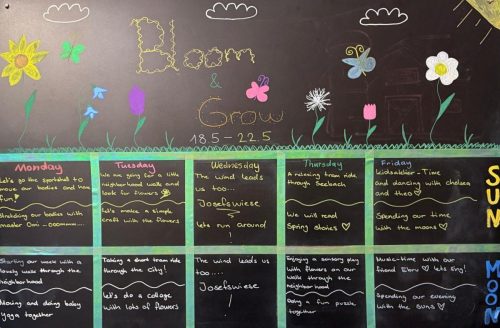 Bloom
&
Grow
18.5 – 22.5
Monday
Let's go the sportshall to
move our bodies and have
fun!
Stretching our bodies with
master Omi - ooommm....
Tuesday
We are going for a little
neighborhood walk and
look for flowers
Let's make a simple
craft with the flowers
Wednesday
The wind leads
us too...
Josefswiese
lets run around
!
Thursday
A relaxing tram ride
through Seebach
We will read
Spring stories
Friday
Kidscatcher - Time
and dancing with chelsea
and theo
Spending our time
with the moons
SUN
Starting our week with a
lovely walk through the
neighborhood
Moving and doing baby
Yoga together
Taking a short tram ride
through the City!
Let's do a collage
with lots of flowers
The wind leads
us too...
Josefswiese
!
Enjoying a sensory play
with flowers on our
walk through the
neighborhood
Doing a fun puzzle
together
Music-time with our
friend Ebru lets sing!
Spending our evening
with the suns
MOON